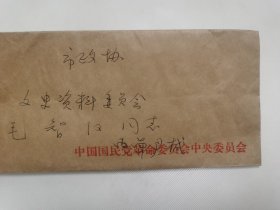 市政协
文史资料委员会
毛智汉同志
中国国民党革命委员会中央委员会